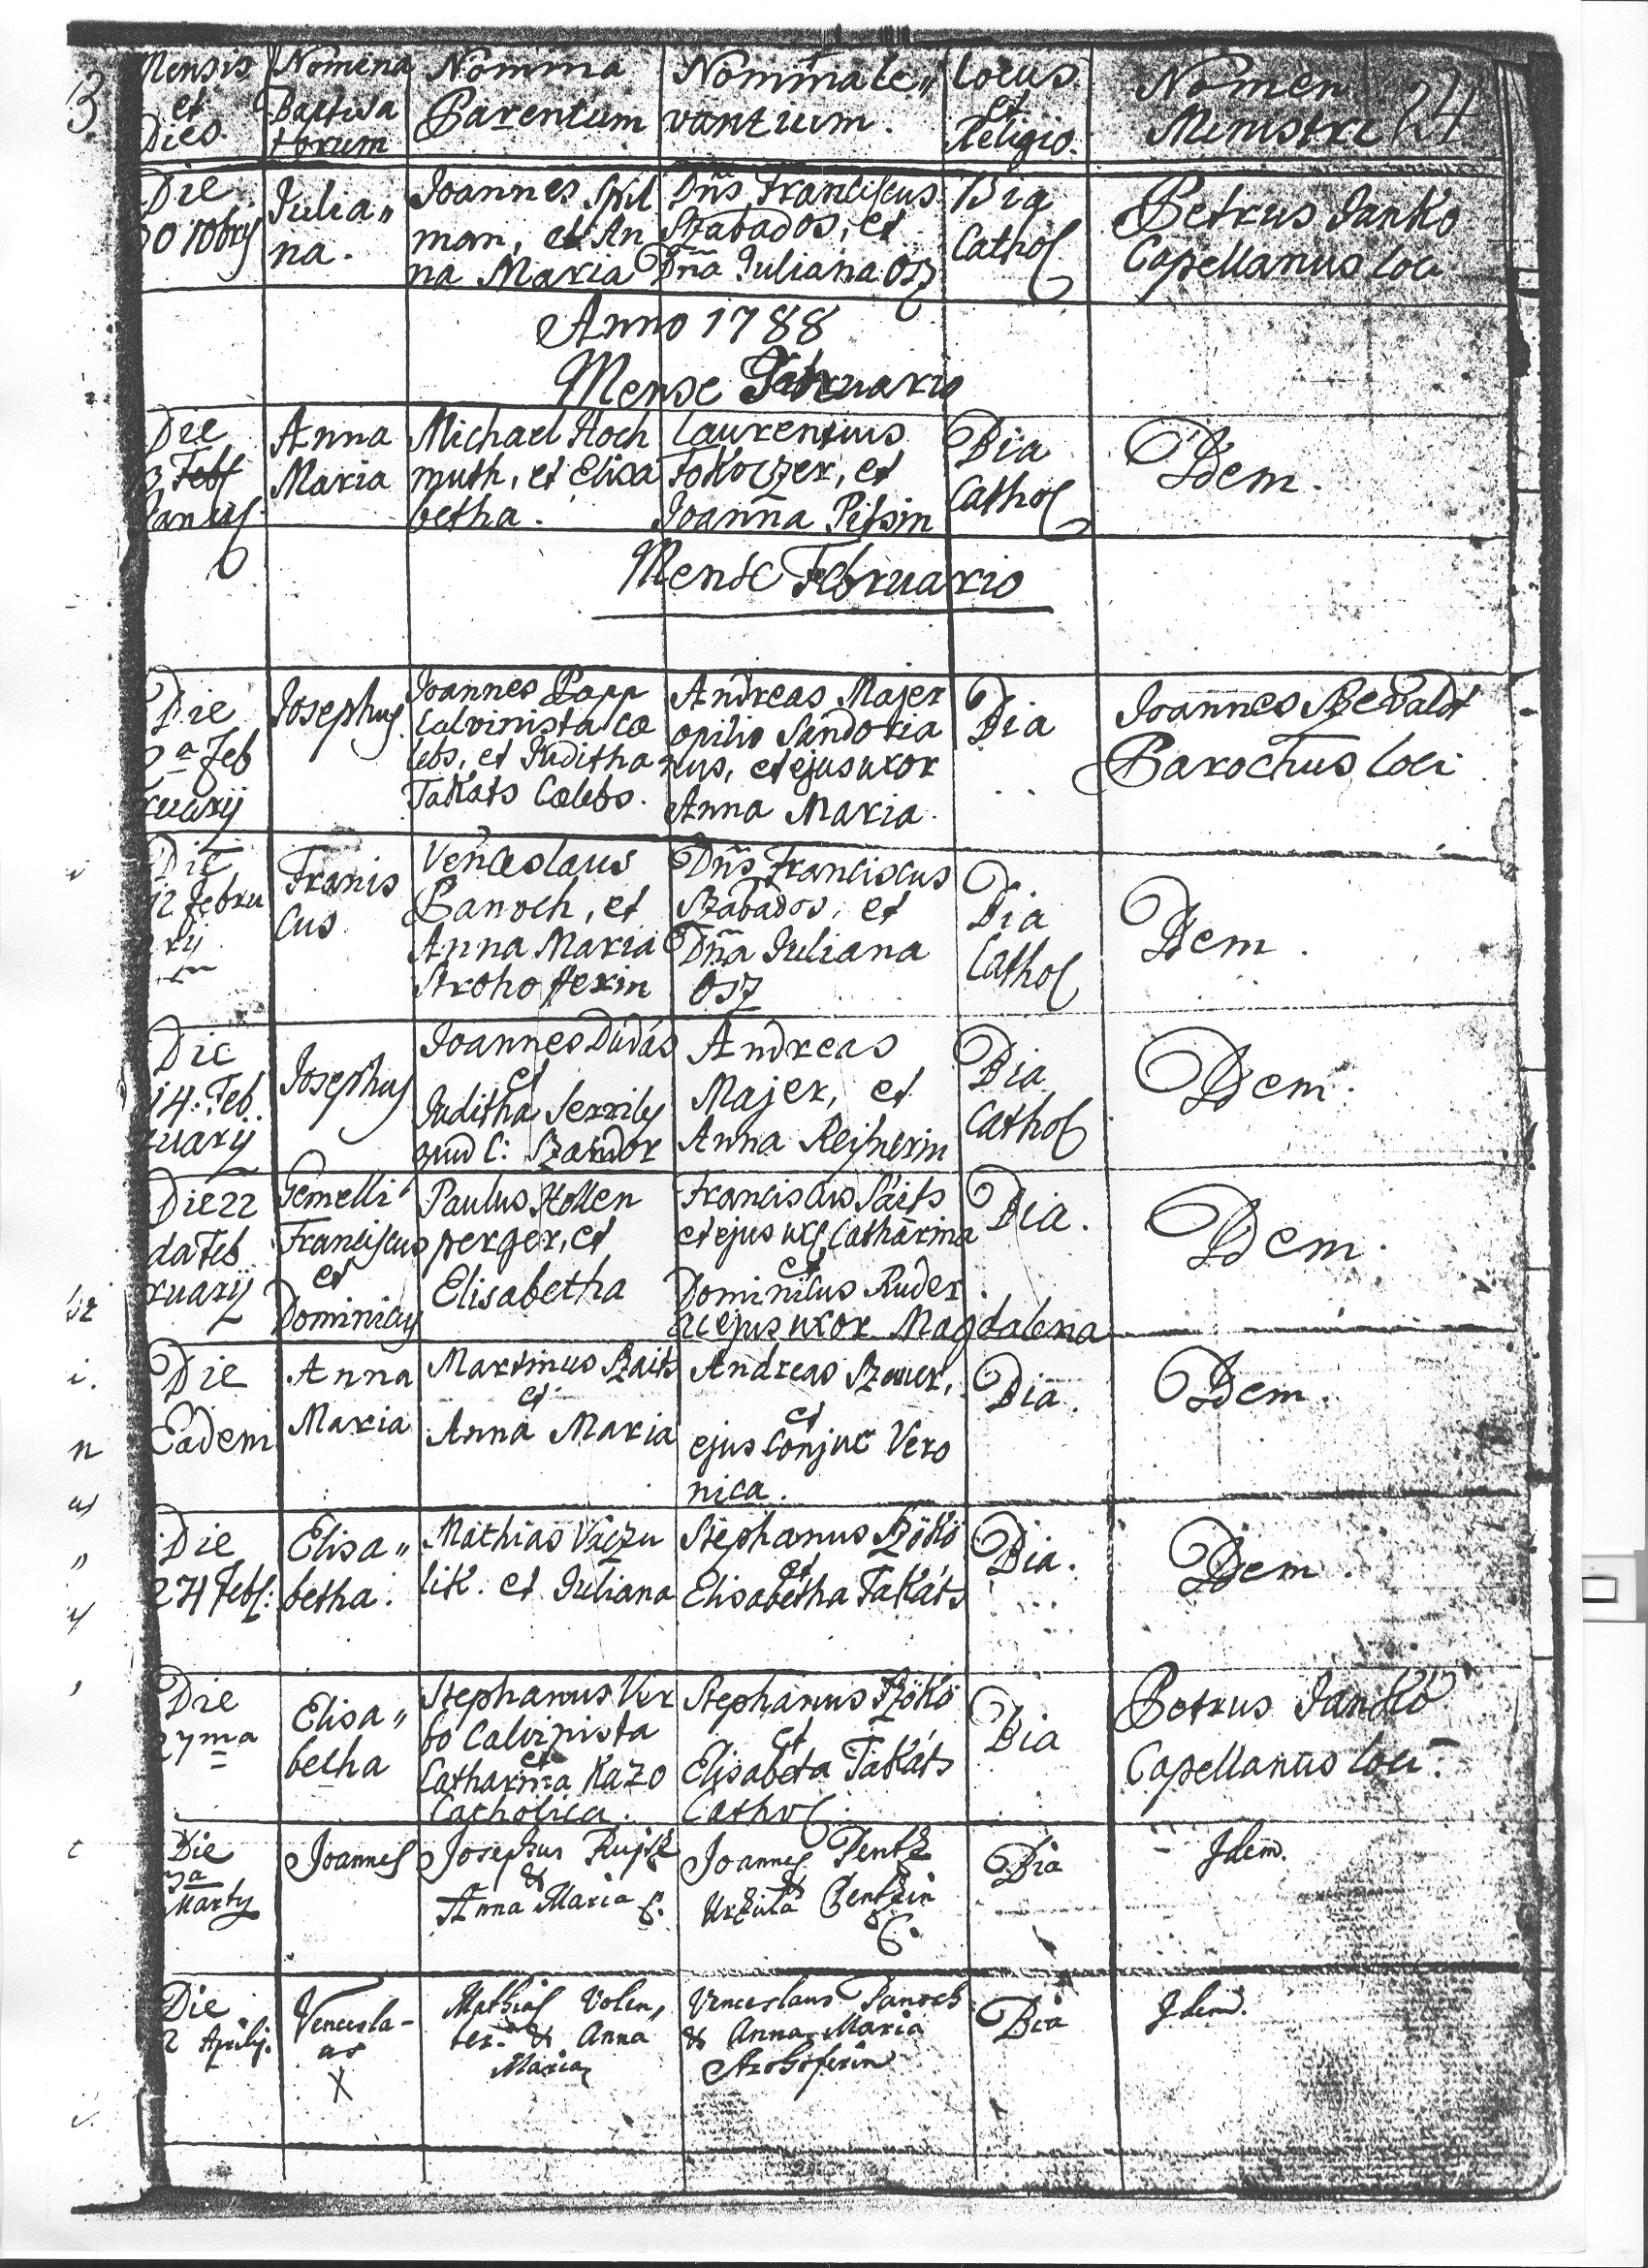 Mensis et Dies.
Nomina Baptisa torum
Nomina Parentum
Nomina le„ vantium.
Locus et Religio.
Nomen Ministri
24
Die
30 10bry
Julia„
na.
Joannes Spil
man, et An
na Maria
Dñs Franciscus
Szabados, et
Dña Juliana Osz
Bia
Cathol
Petrus Janko
Capellanus loci
Anno 1788
Mense Februario
Die
3 Feb
Anna
Maria
Michael Hoch
muth, et Elisa
betha.
Laurentius
et
Joanna
Bia
Cathol
Idem.
Mense Februario
Die
2a Feb
ruarij
Josephus
Joannes Papp
Calvinista Cæ
lebs, et Juditha
Takats Cælebs.
Andreas Majer
opilio Sandoria
nus, et ejus uxor
Anna Maria.
Bia
Joannes
Parochus loci
Die
12 Febru
arij
Francis
cus
Venceslaus
Panoch, et
Anna Maria
Strohofferin
Dñs Franciscus
Szabados, et
Dña Juliana
Osz
Bia
Cathol
Idem.
Die
14. Feb
ruarij
Josephus
Joannes Dudás
et
Juditha
Szandor
Andreas
Majer, et
Anna
Bia
Cathol
Idem.
Die 22
da Feb
ruarij
Gemelli
Franciscus
et
Dominicus
Paulus Hollen
perger, et
Elisabetha
Franciscus
et ejus Catharina
et
Dominicus Ruder
ac ejus uxor Magdalena
Bia.
Idem.
Die
Eadem
Anna
Maria
Martinus Szaits
et
Anna Maria
Andreas
et
ejus Conjux Vero
nica.
Bia.
Idem.
Die
24 Feb:
Elisa„
betha.
Mathias Vaczu
lik. et Juliana
Stephanus Szökö
et
Elisabetha Takáts
Bia.
Idem.
Die
27ma
Elisa„
betha
Stephanus Ver
bo Calvinista
et
Catharina Kazo
Catholica.
Stephanus Szökö
et
Elisabeta Takáts
Cathol.
Bia
Petrus Jankó
Capellanus loci.
Die
Marty
Joannes
Josephus
&
Anna Maria C.
Joannes
&
C.
Bia
Idem.
Die
2 Aprilij.
Vencesla-
us
X
Mathias Volen„
ter. & Anna
Maria
Venceslaus Panoch
& Anna Maria
Strohoferin
Bia
Idem.